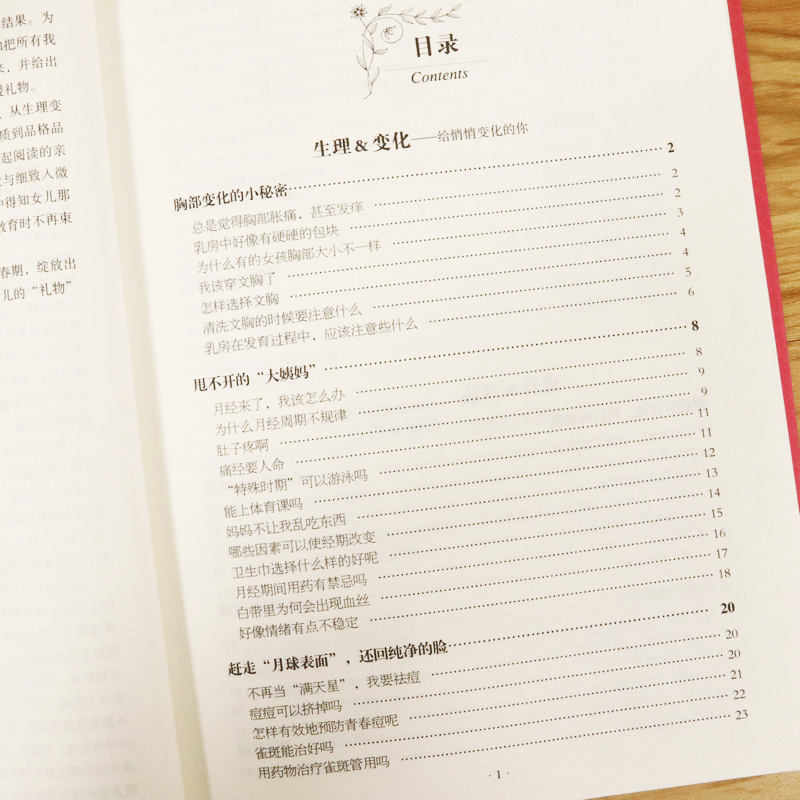 结果。为
把所有我
，并给出
礼物。
从生理变
质到品格品
起阅读的亲
与细致入微
中得知女儿那
教育时不再束
春期，绽放出
儿的“礼物”
目录
Contents
生理&变化——给悄悄变化的你
胸部变化的小秘密 2
总是觉得胸部胀痛，甚至发痒 2
乳房中好像有硬硬的包块 2
为什么有的女孩胸部大小不一样 3
我该穿文胸了 4
怎样选择文胸 4
清洗文胸的时候要注意什么 5
乳房在发育过程中，应该注意些什么 6
甩不开的“大姨妈” 8
月经来了，我该怎么办 8
为什么月经周期不规律 9
肚子疼啊 9
痛经要人命 11
“特殊时期”可以游泳吗 11
能上体育课吗 12
妈妈不让我乱吃东西 13
哪些因素可以使经期改变 14
卫生巾选择什么样的好呢 15
月经期间用药有禁忌吗 16
白带里为何会出现血丝 17
好像情绪有点不稳定 18
赶走“月球表面”，还回纯净的脸 20
不再当“满天星”，我要祛痘 20
痘痘可以挤掉吗 20
怎样有效地预防青春痘呢 21
雀斑能治好吗 22
用药物治疗雀斑管用吗 23
·1·